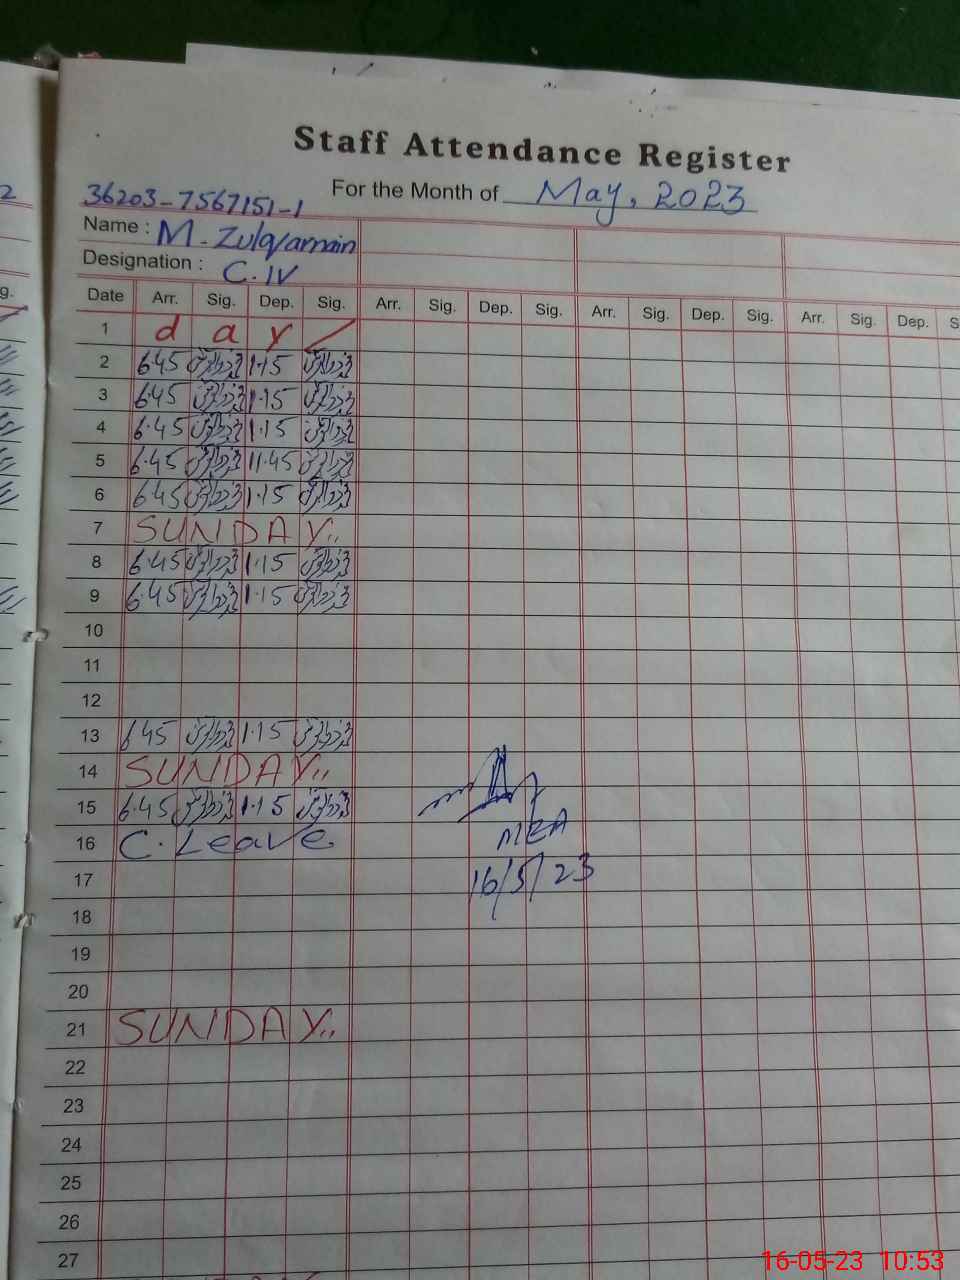 Staff Attendance Register
For the Month of May, 2023
36203-7567151-1
Name : M. Zulqarnain
Designation : C.IV
Date Arr. Sig. Dep. Sig. Arr. Sig. Dep. Sig. Arr. Sig. Dep. Sig. Arr. Sig. Dep. S
1 d a y
2 6.45 1.15
3 6.45 1.15
4 6.45 1.15
5 6.45 11.45
6 6.45 1.15
7 SUNDAY..
8 6.45 1.15
9 6.45 1.15
10
11
12
13 6.45 1.15
14 SUNDAY..
15 6.45 1.15
16 C. Leave.
MEA
17
16/5/23
18
19
20
21 SUNDAY..
22
23
24
25
26
27
16-05-23 10:53